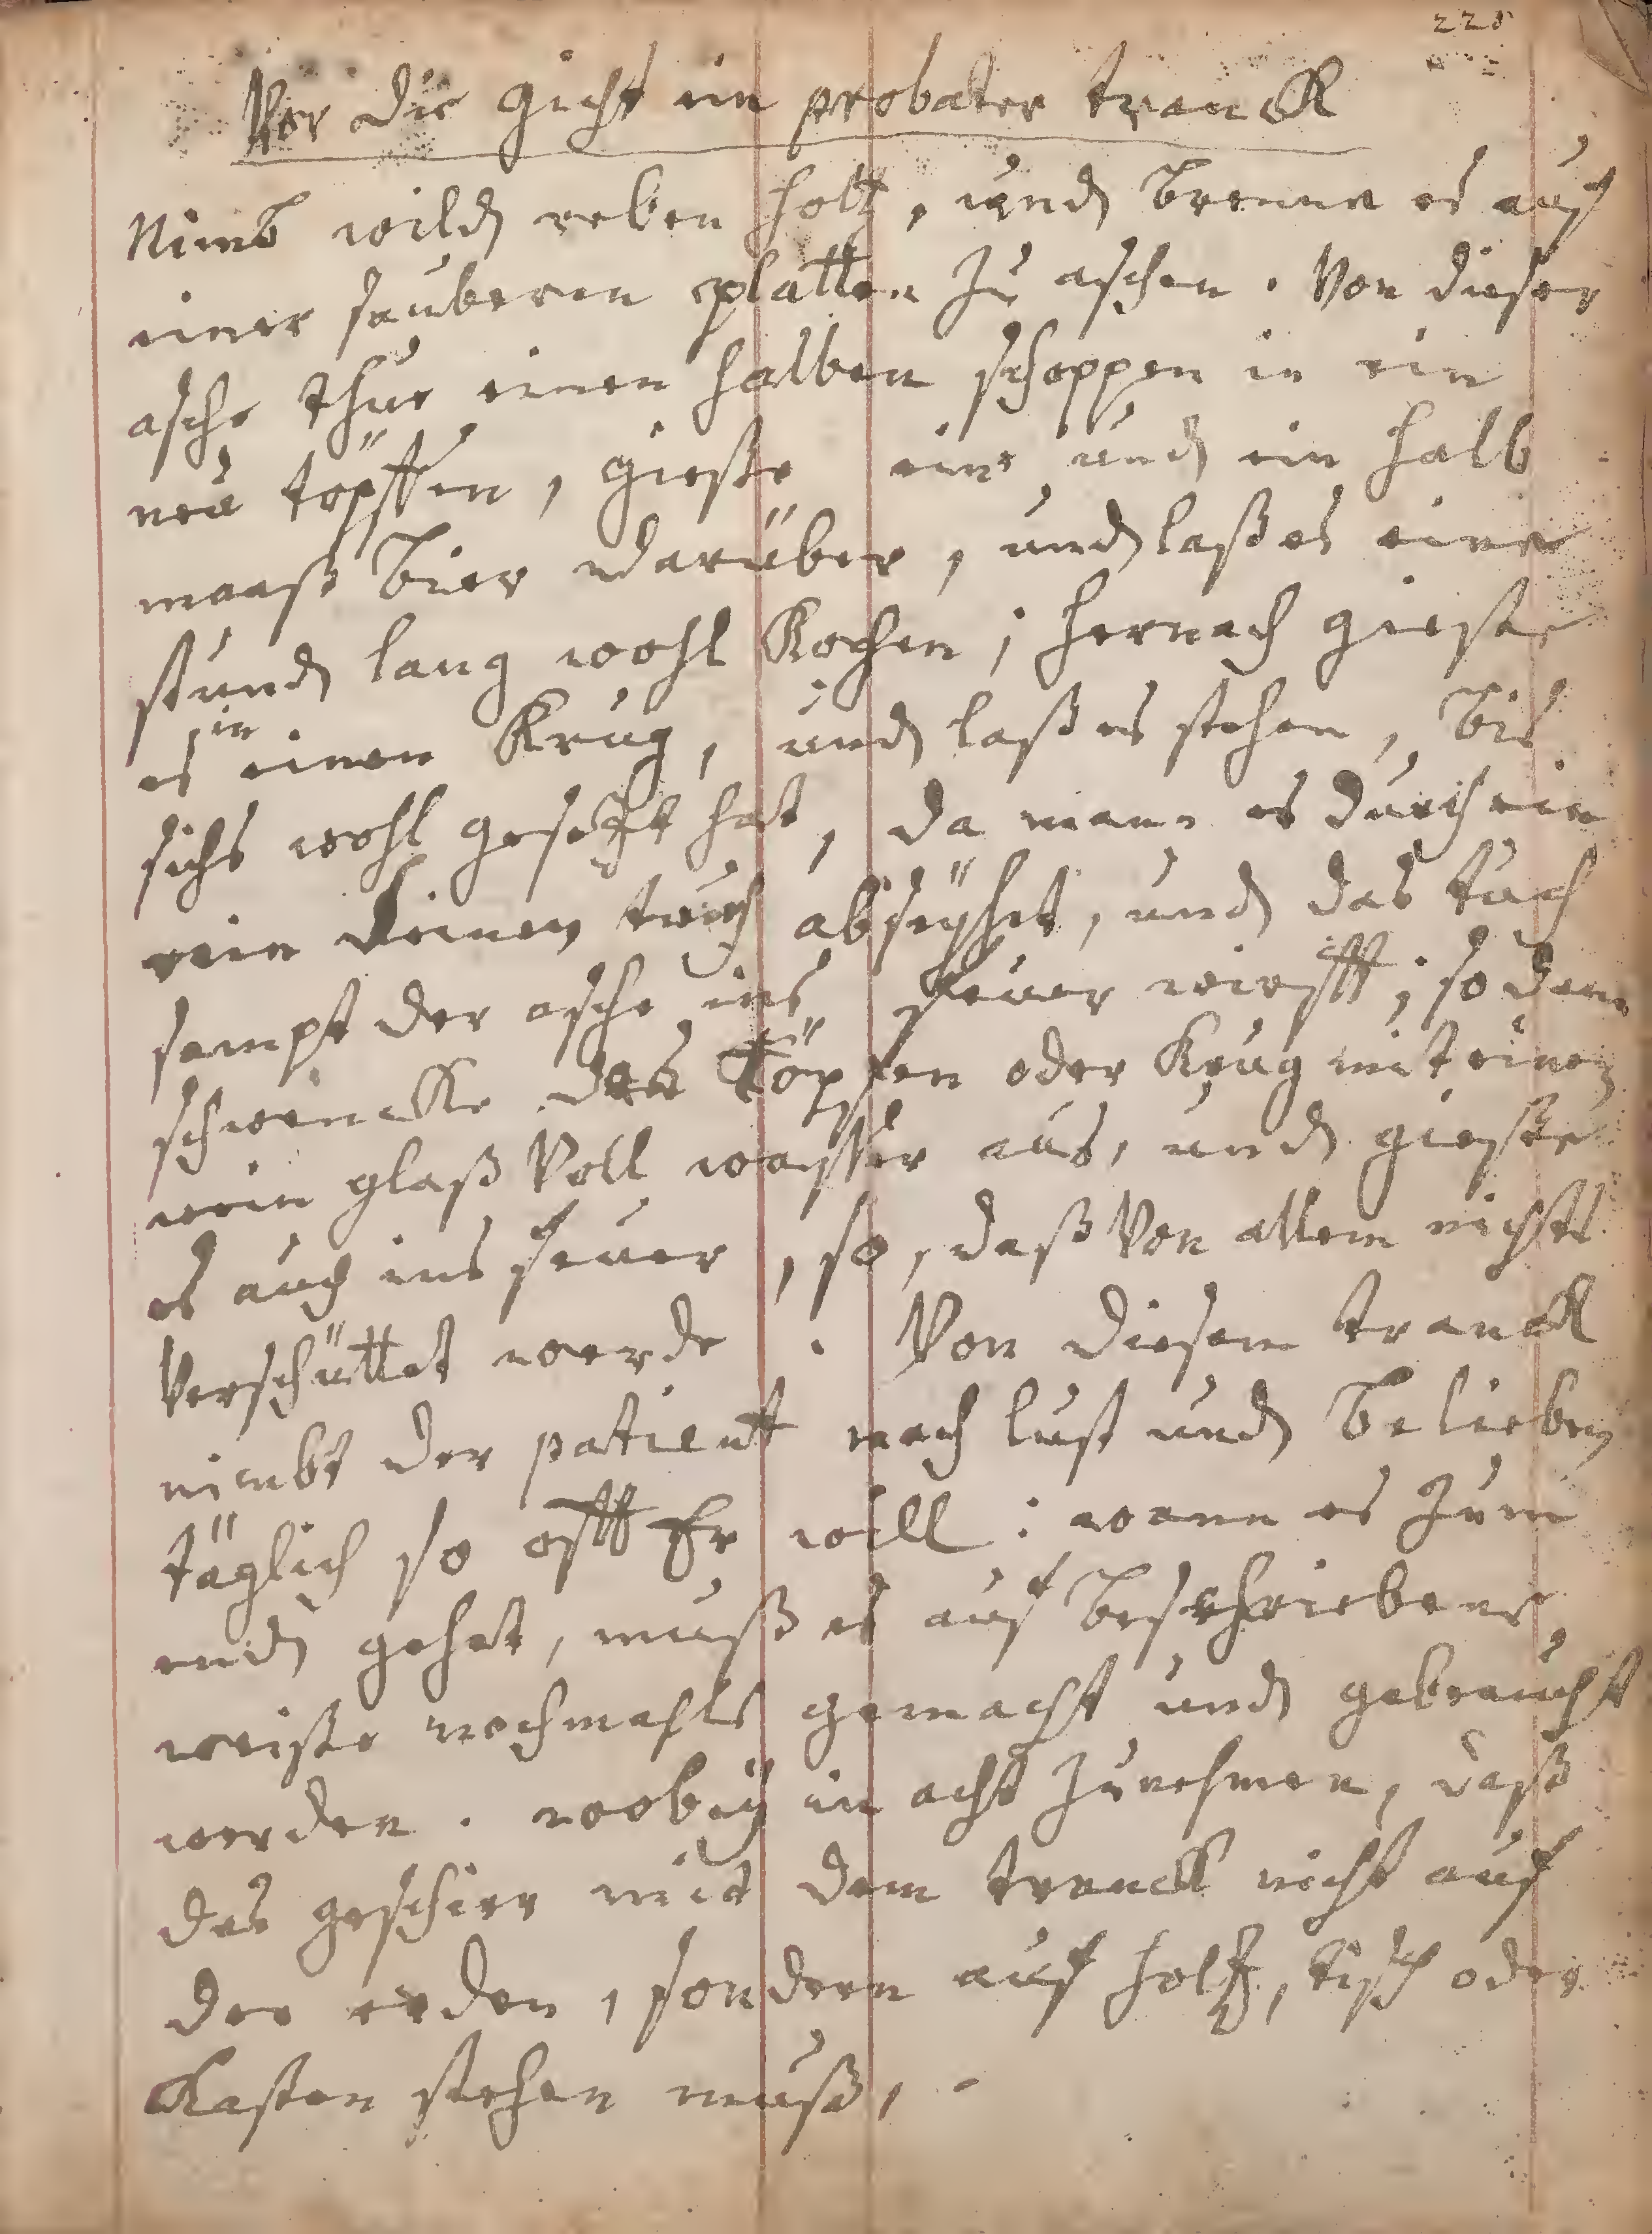 228
Vor die Gicht ein probater tranck
Nimb wild reben holtz, und brenne es auf
einer sauberen platten zu aschen. Von dieser
asche thue einen halben schoppen in ein
neu töpffen, gieße eine und ein halb
maaß bier darüber, und laß es eine
stund lang wohl kochen; hernach gieße
es in einen Krug, und laß es stehen, bis
sichs wohl gesetzt hat, da mann es durch ein
rein leinen tuch abseyhet, und das tuch
sampt der asche ins feuer wirfft; so dann
schwencke den Töpfen oder Krug mit einem
wein glaß voll wasser aus, und gieße
es auch ins feuer, so, daß von allem nichts
verschüttet werde. Von diesem tranck
nimbt der patient nach lust und belieben
täglich so offt Er will: wann es zum
end gehet, muß es auf beschriebene
weiße nochmahls gemacht und gebraucht
werden. wobey in acht zu nehmen, daß
das geschirr mit dem tranck nicht auf
der erden, sondern auf holtz, tisch oder
Kasten stehen muß,